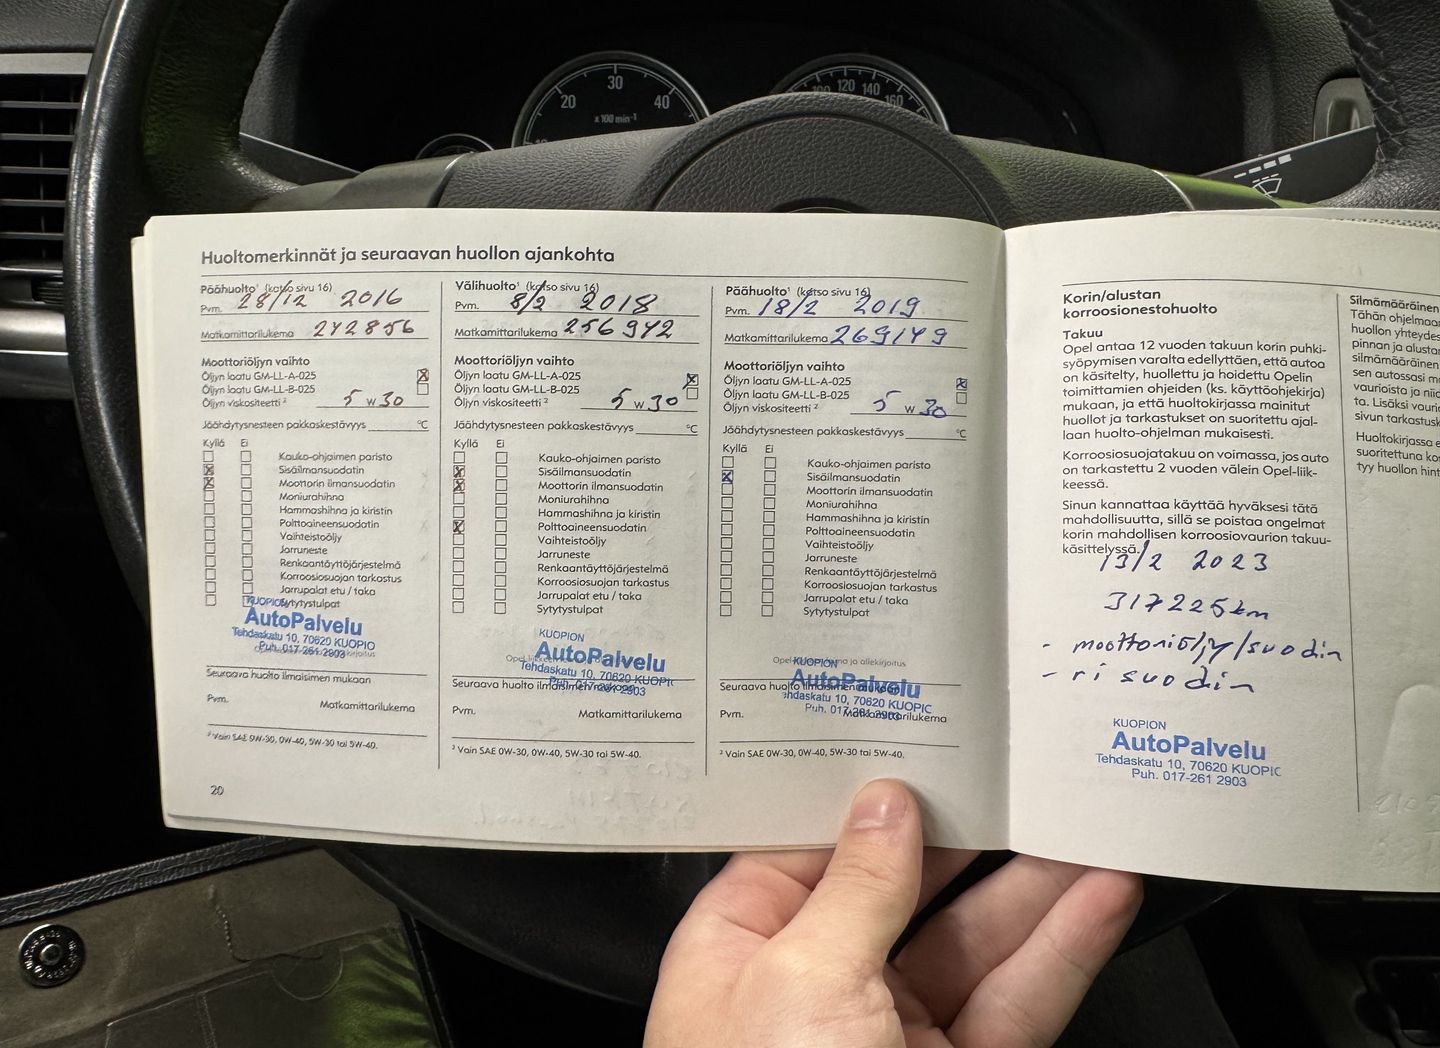 20
30
40
x 100 min⁻¹
100
120
140
160
Huoltomerkinnät ja seuraavan huollon ajankohta
Päähuolto¹ (katso sivu 16)
Pvm. 28/12 2016
Matkamittarilukema 242856
Moottoriöljyn vaihto
Öljyn laatu GM-LL-A-025 X
Öljyn laatu GM-LL-B-025
Öljyn viskositeetti ² 5 W 30
Jäähdytysnesteen pakkaskestävyys °C
Kyllä Ei
Kauko-ohjaimen paristo
X Sisäilmansuodatin
X Moottorin ilmansuodatin
Moniurahihna
Hammashihna ja kiristin
Polttoaineensuodatin
Vaihteistoöljy
Jarruneste
Renkaantäyttöjärjestelmä
Korroosiosuojan tarkastus
Jarrupalat etu / taka
Sytytystulpat
KUOPION
AutoPalvelu
Tehdaskatu 10, 70620 KUOPIO
Puh. 017-261 2903
Seuraava huolto ilmaisimen mukaan
Pvm. Matkamittarilukema
² Vain SAE 0W-30, 0W-40, 5W-30 tai 5W-40.
20
Välihuolto¹ (katso sivu 16)
Pvm. 8/2 2018
Matkamittarilukema 256942
Moottoriöljyn vaihto
Öljyn laatu GM-LL-A-025 X
Öljyn laatu GM-LL-B-025
Öljyn viskositeetti ² 5 W 30
Jäähdytysnesteen pakkaskestävyys °C
Kyllä Ei
Kauko-ohjaimen paristo
X Sisäilmansuodatin
X Moottorin ilmansuodatin
Moniurahihna
Hammashihna ja kiristin
X Polttoaineensuodatin
Vaihteistoöljy
Jarruneste
Renkaantäyttöjärjestelmä
Korroosiosuojan tarkastus
Jarrupalat etu / taka
Sytytystulpat
KUOPION
AutoPalvelu
Tehdaskatu 10, 70620 KUOPIO
Puh. 017-261 2903
Seuraava huolto ilmaisimen mukaan
Pvm. Matkamittarilukema
² Vain SAE 0W-30, 0W-40, 5W-30 tai 5W-40.
Päähuolto¹ (katso sivu 16)
Pvm. 18/2 2019
Matkamittarilukema 269149
Moottoriöljyn vaihto
Öljyn laatu GM-LL-A-025 X
Öljyn laatu GM-LL-B-025
Öljyn viskositeetti ² 5 W 30
Jäähdytysnesteen pakkaskestävyys °C
Kyllä Ei
Kauko-ohjaimen paristo
X Sisäilmansuodatin
Moottorin ilmansuodatin
Moniurahihna
Hammashihna ja kiristin
Polttoaineensuodatin
Vaihteistoöljy
Jarruneste
Renkaantäyttöjärjestelmä
Korroosiosuojan tarkastus
Jarrupalat etu / taka
Sytytystulpat
KUOPION
AutoPalvelu
Tehdaskatu 10, 70620 KUOPIO
Puh. 017-261 2903
Seuraava huolto ilmaisimen mukaan
Pvm. Matkamittarilukema
² Vain SAE 0W-30, 0W-40, 5W-30 tai 5W-40.
Korin/alustan
korroosionestohuolto
Takuu
Opel antaa 12 vuoden takuun korin puhki-
syöpymisen varalta edellyttäen, että autoa
on käsitelty, huollettu ja hoidettu Opelin
toimittamien ohjeiden (ks. käyttöohjekirja)
mukaan, ja että huoltokirjassa mainitut
huollot ja tarkastukset on suoritettu ajal-
laan huolto-ohjelman mukaisesti.
Korroosiosuojatakuu on voimassa, jos auto
on tarkastettu 2 vuoden välein Opel-liik-
keessä.
Sinun kannattaa käyttää hyväksesi tätä
mahdollisuutta, sillä se poistaa ongelmat
korin mahdollisen korroosiovaurion takuu-
käsittelyssä.
13/2 2023
317225 km
- moottoriöljy/suodin
- ri suodin
KUOPION
AutoPalvelu
Tehdaskatu 10, 70620 KUOPIO
Puh. 017-261 2903
Silmämääräinen
Tähän ohjelmaan
huollon yhteydes
pinnan ja alustan
silmämääräinen
sen autossasi m
vaurioista ja niid
ta. Lisäksi vaurio
sivun tarkastusk
Huoltokirjassa e
suoritettuna ko
tyy huollon hint